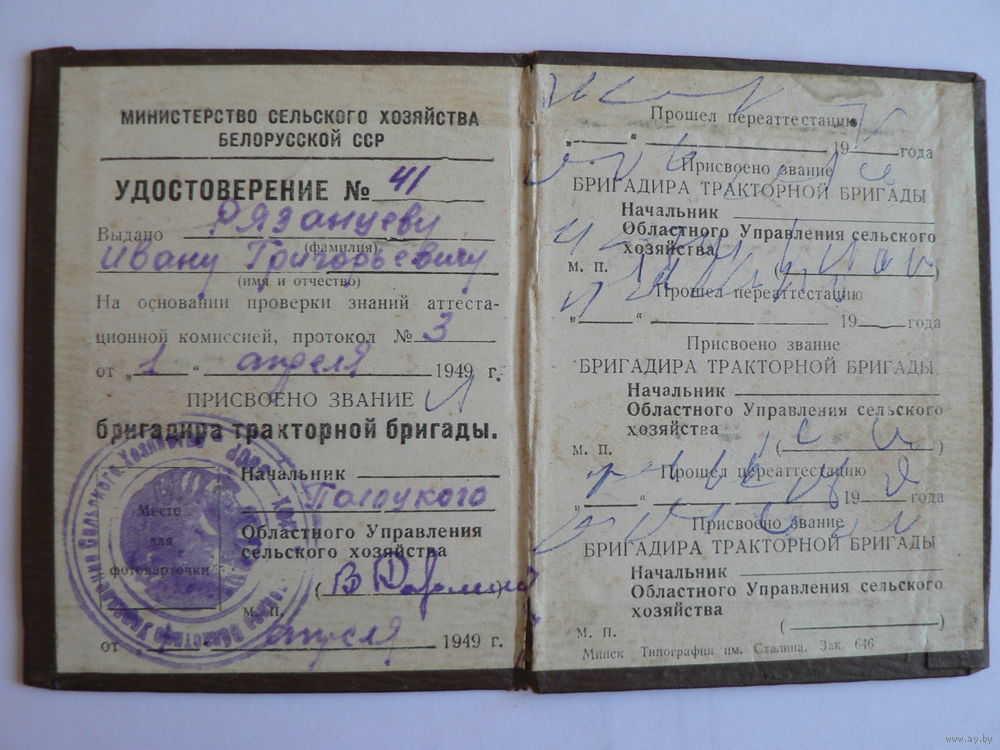 МИНИСТЕРСТВО СЕЛЬСКОГО ХОЗЯЙСТВА
БЕЛОРУССКОЙ ССР
УДОСТОВЕРЕНИЕ № 41
Выдано Рязанцеву
(фамилия)
Ивану Григорьевичу
(имя и отчество)
На основании проверки знаний аттеста-
ционной комиссией, протокол № 3
от „1" апреля 1949 г.
ПРИСВОЕНО ЗВАНИЕ
бригадира тракторной бригады.
Начальник
Полоцкого
Областного Управления
сельского хозяйства
Место
для
фотокарточки
М. П.
от апреля 1949 г.
Прошел переаттестацию
„ " 19 года
Присвоено звание
БРИГАДИРА ТРАКТОРНОЙ БРИГАДЫ
Начальник
Областного Управления сельского
хозяйства
М. П. ( )
Прошел переаттестацию
„ " 19 года
Присвоено звание
БРИГАДИРА ТРАКТОРНОЙ БРИГАДЫ
Начальник
Областного Управления сельского
хозяйства
М. П. ( )
Прошел переаттестацию
„ " 19 года
Присвоено звание
БРИГАДИРА ТРАКТОРНОЙ БРИГАДЫ
Начальник
Областного Управления сельского
хозяйства
М. П. ( )
Минск Типография им. Сталина. Зак. 646
www.ay.by